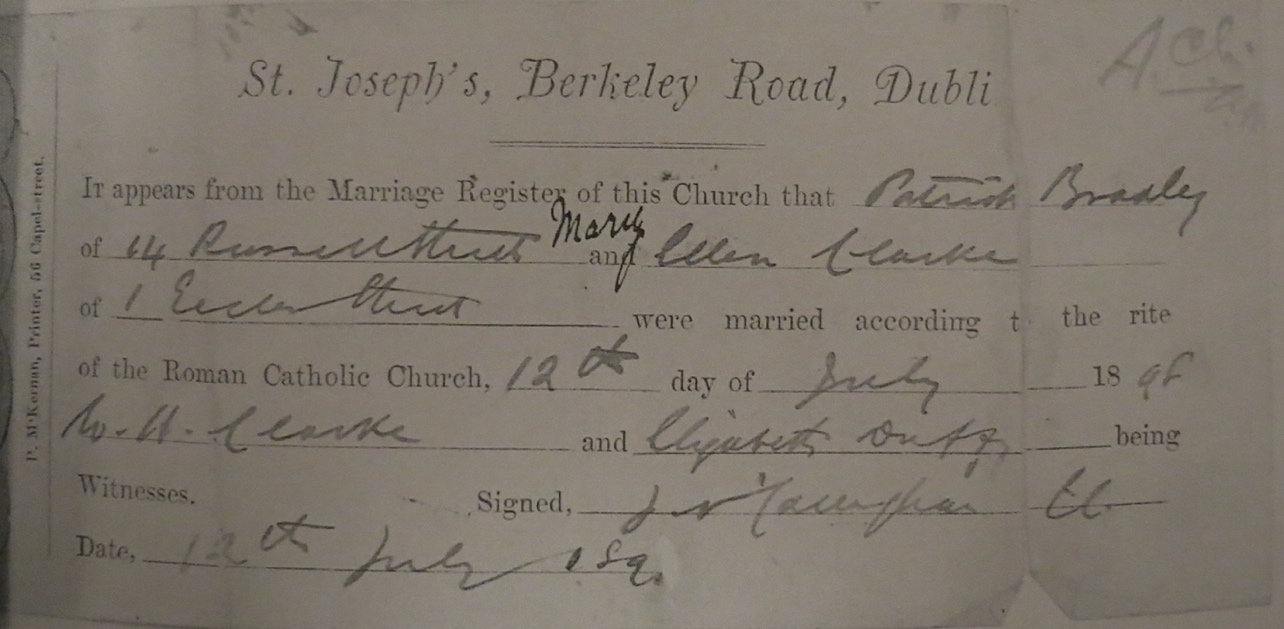 St. Joseph's, Berkeley Road, Dubli
It appears from the Marriage Register of this Church that Patrick Bradley
Mary
of 14 Russell Street and Ellen Clarke
of 1 Eccles Street were married according t the rite
of the Roman Catholic Church, 12th day of July 18
W. H. Clarke and Elizabeth Duffy being
Witnesses. Signed, J
Date, 12th July
P. M'Kernan, Printer, 56 Capel-street.